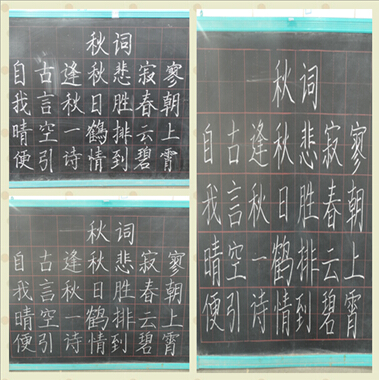 秋词
自古逢秋悲寂寥
我言秋日胜春朝
晴空一鹤排云上
便引诗情到碧霄
秋词
自古逢秋悲寂寥
我言秋日胜春朝
晴空一鹤排云上
便引诗情到碧霄
秋词
自古逢秋悲寂寥
我言秋日胜春朝
晴空一鹤排云上
便引诗情到碧霄